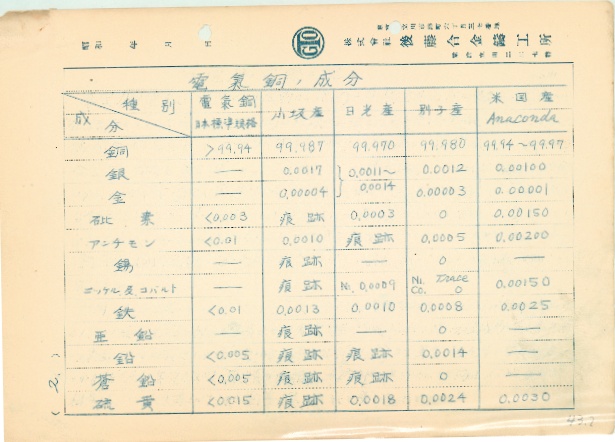 昭和 年 月 日
GTO
株式會社 後藤合金鑄工所
電氣銅ノ成分
種別 成分 電氣銅 日本標準規格 小坂産 日光産 別子産 米国産 Anaconda
銅 >99.94 99.987 99.970 99.980 99.94~99.97
銀 — 0.0017 0.0011~0.0014 0.0012 0.00100
金 — 0.00004 0.00003 0.00001
砒素 <0.003 痕跡 0.0003 0 0.00150
アンチモン <0.01 0.0010 痕跡 0.0005 0.00200
錫 — 痕跡 — 0 —
ニッケル及コバルト — 痕跡 Ni. 0.0009 Ni. Trace Co. 0 0.00150
鉄 <0.01 0.0013 0.0010 0.0008 0.0025
亜鉛 — 痕跡 — 0 —
鉛 <0.005 痕跡 痕跡 0.0014 —
蒼鉛 <0.005 痕跡 痕跡 0 —
硫黄 <0.015 痕跡 0.0018 0.0024 0.0030
(2.)